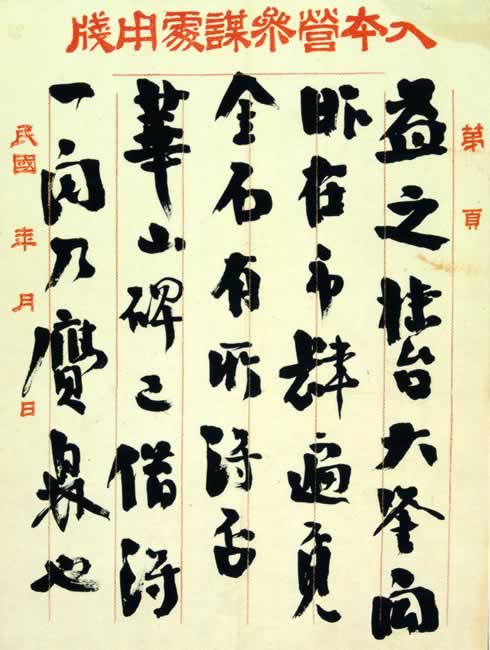 大本營參謀處用牋
第 頁
益之棣台大鑒聞
昨在市肆遍覓
金石有所得否
華山碑已借得
一閱乃贗鼎也
民國 年 月 日